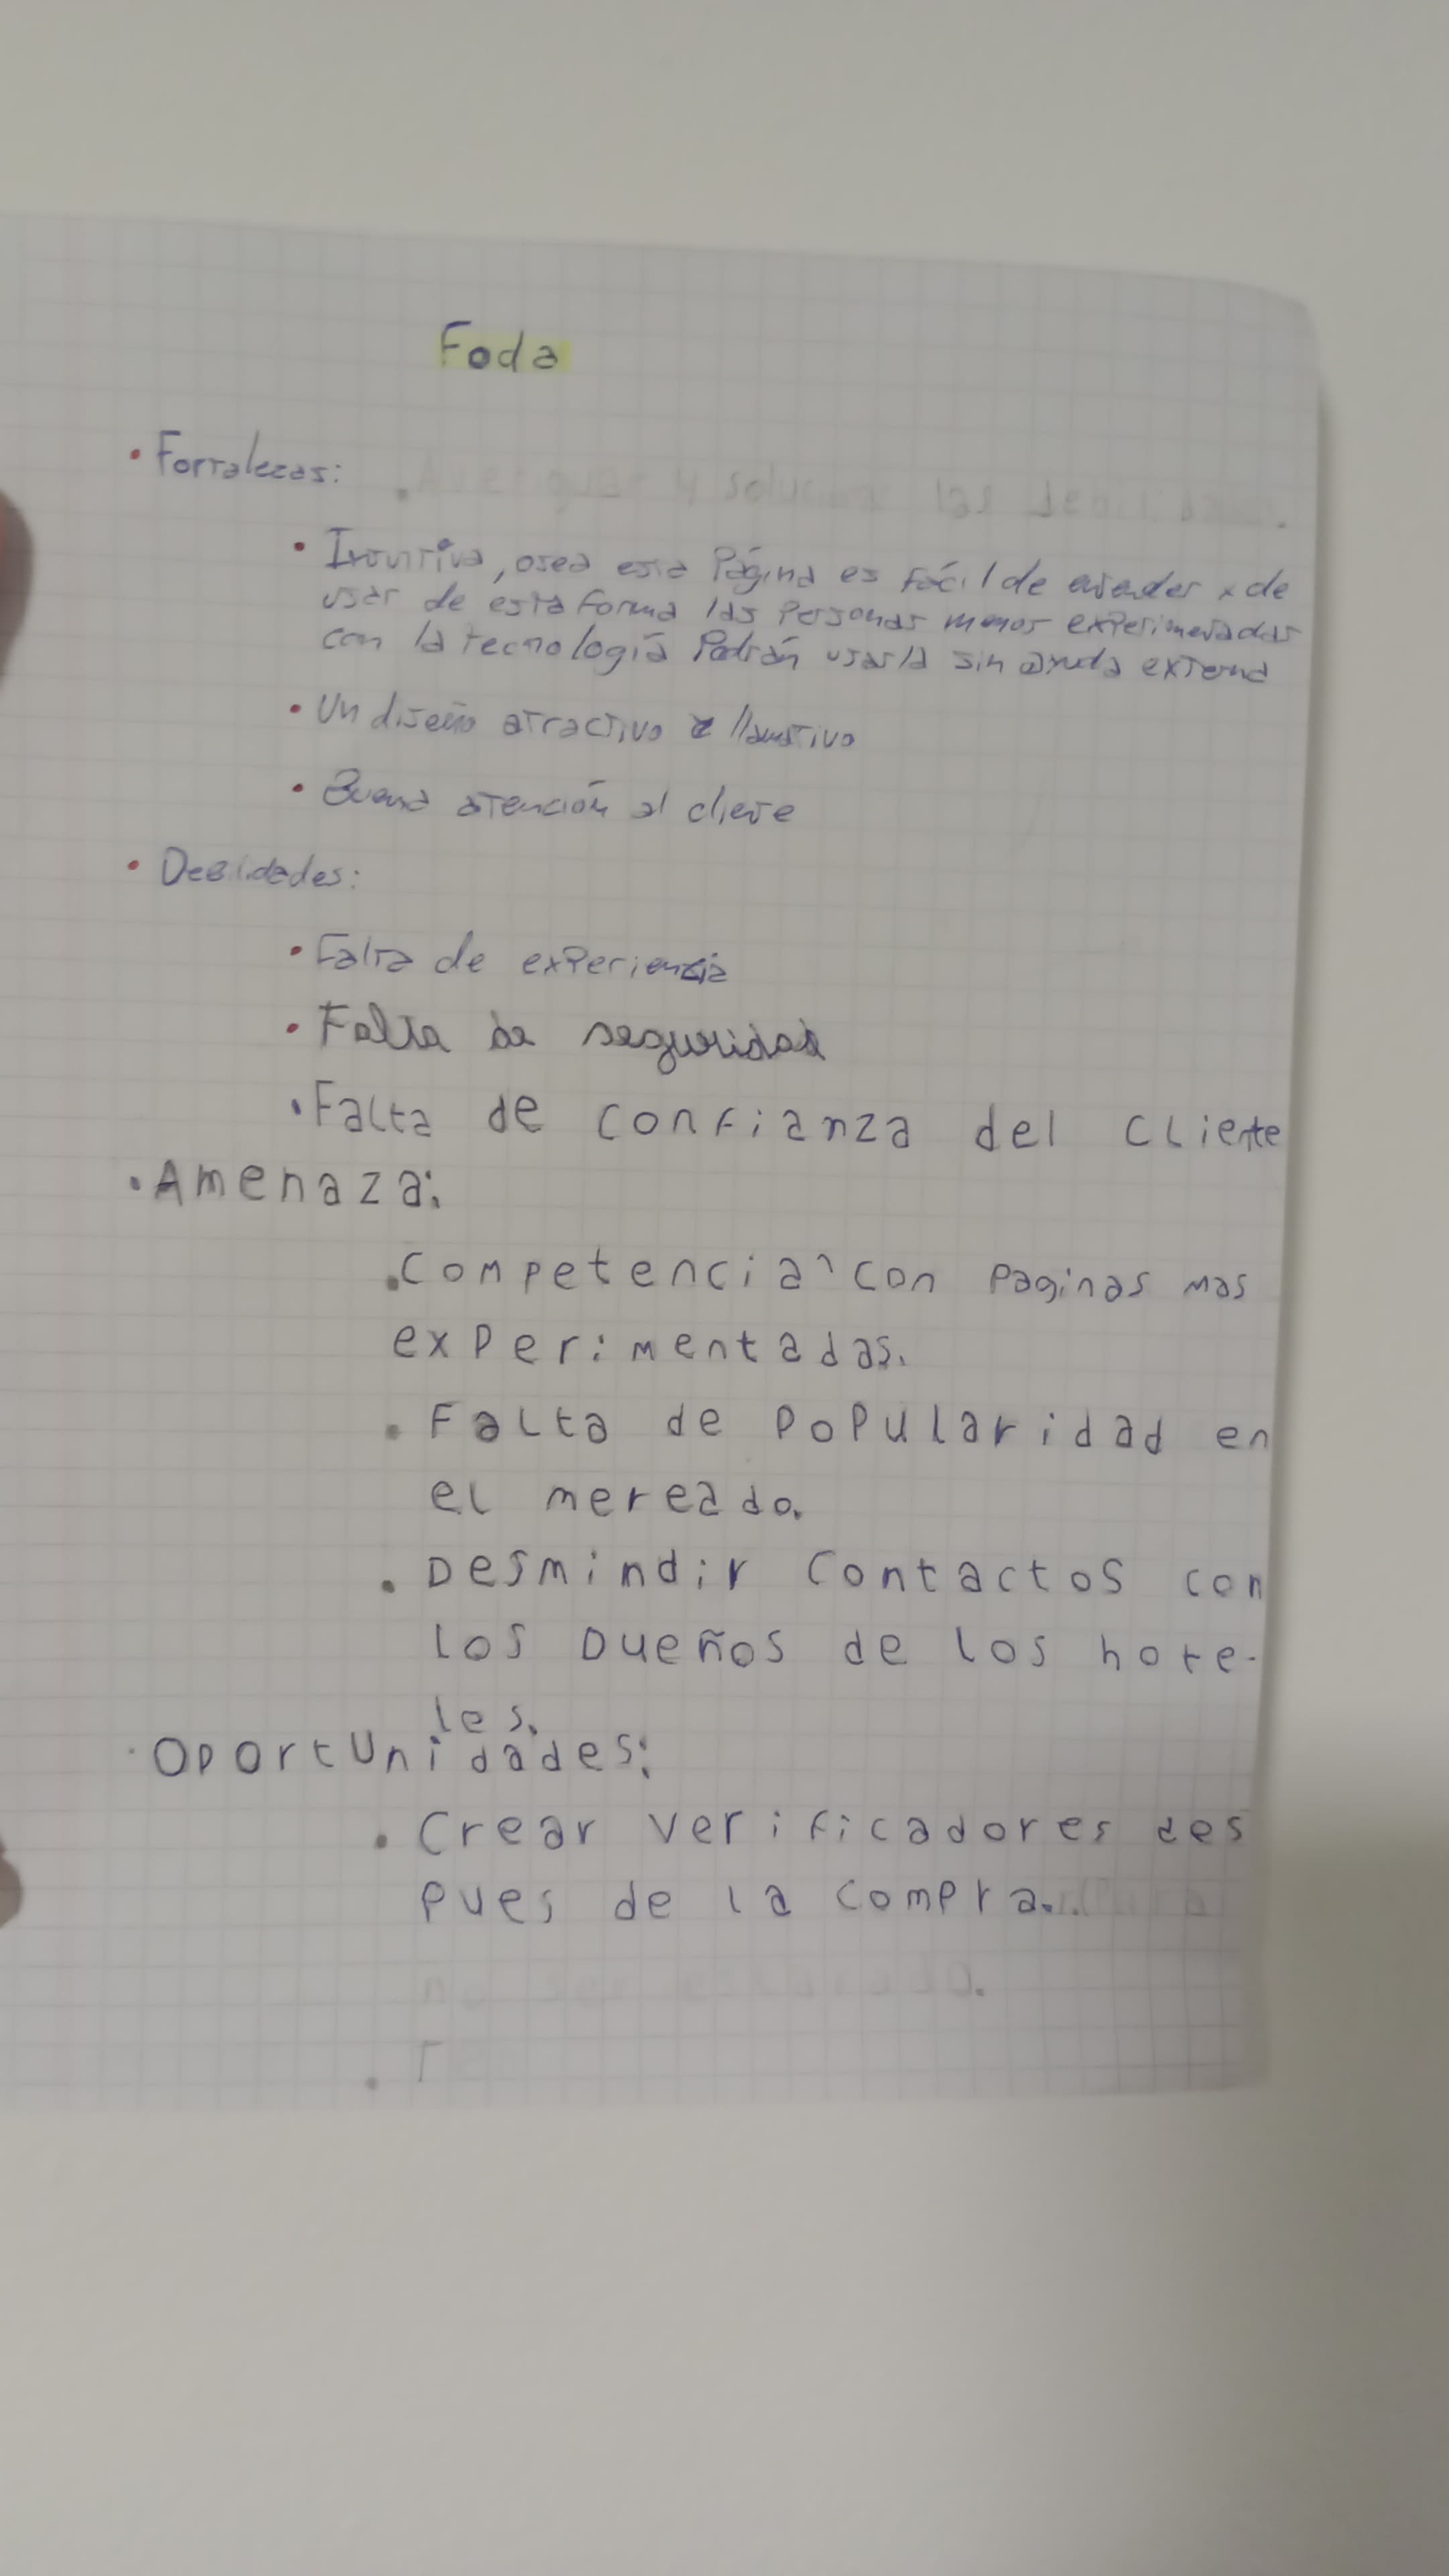 Foda
• Fortalezas:
• Intuitiva, osea esta Página es fácil de entender y de
usar de esta forma las Personas menos experimentadas
con la tecnología Podrán usarla sin ayuda externa
• Un diseño atractivo y llamativo
• Buena atención al cliente
• Debilidades:
• Falta de experiencia
• Falta de seguridad
• Falta de confianza del cliente
• Amenaza:
• Competencia con paginas mas
experimentadas.
• Falta de popularidad en
el mercado.
• Desmindir contactos con
los Dueños de los hote-
les.
• Oportunidades:
• Crear verificadores des
pues de la compra.